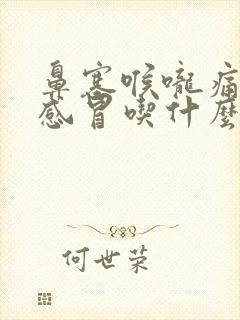 鼻塞喉嚨痛
感冒喫什麼
何世荣